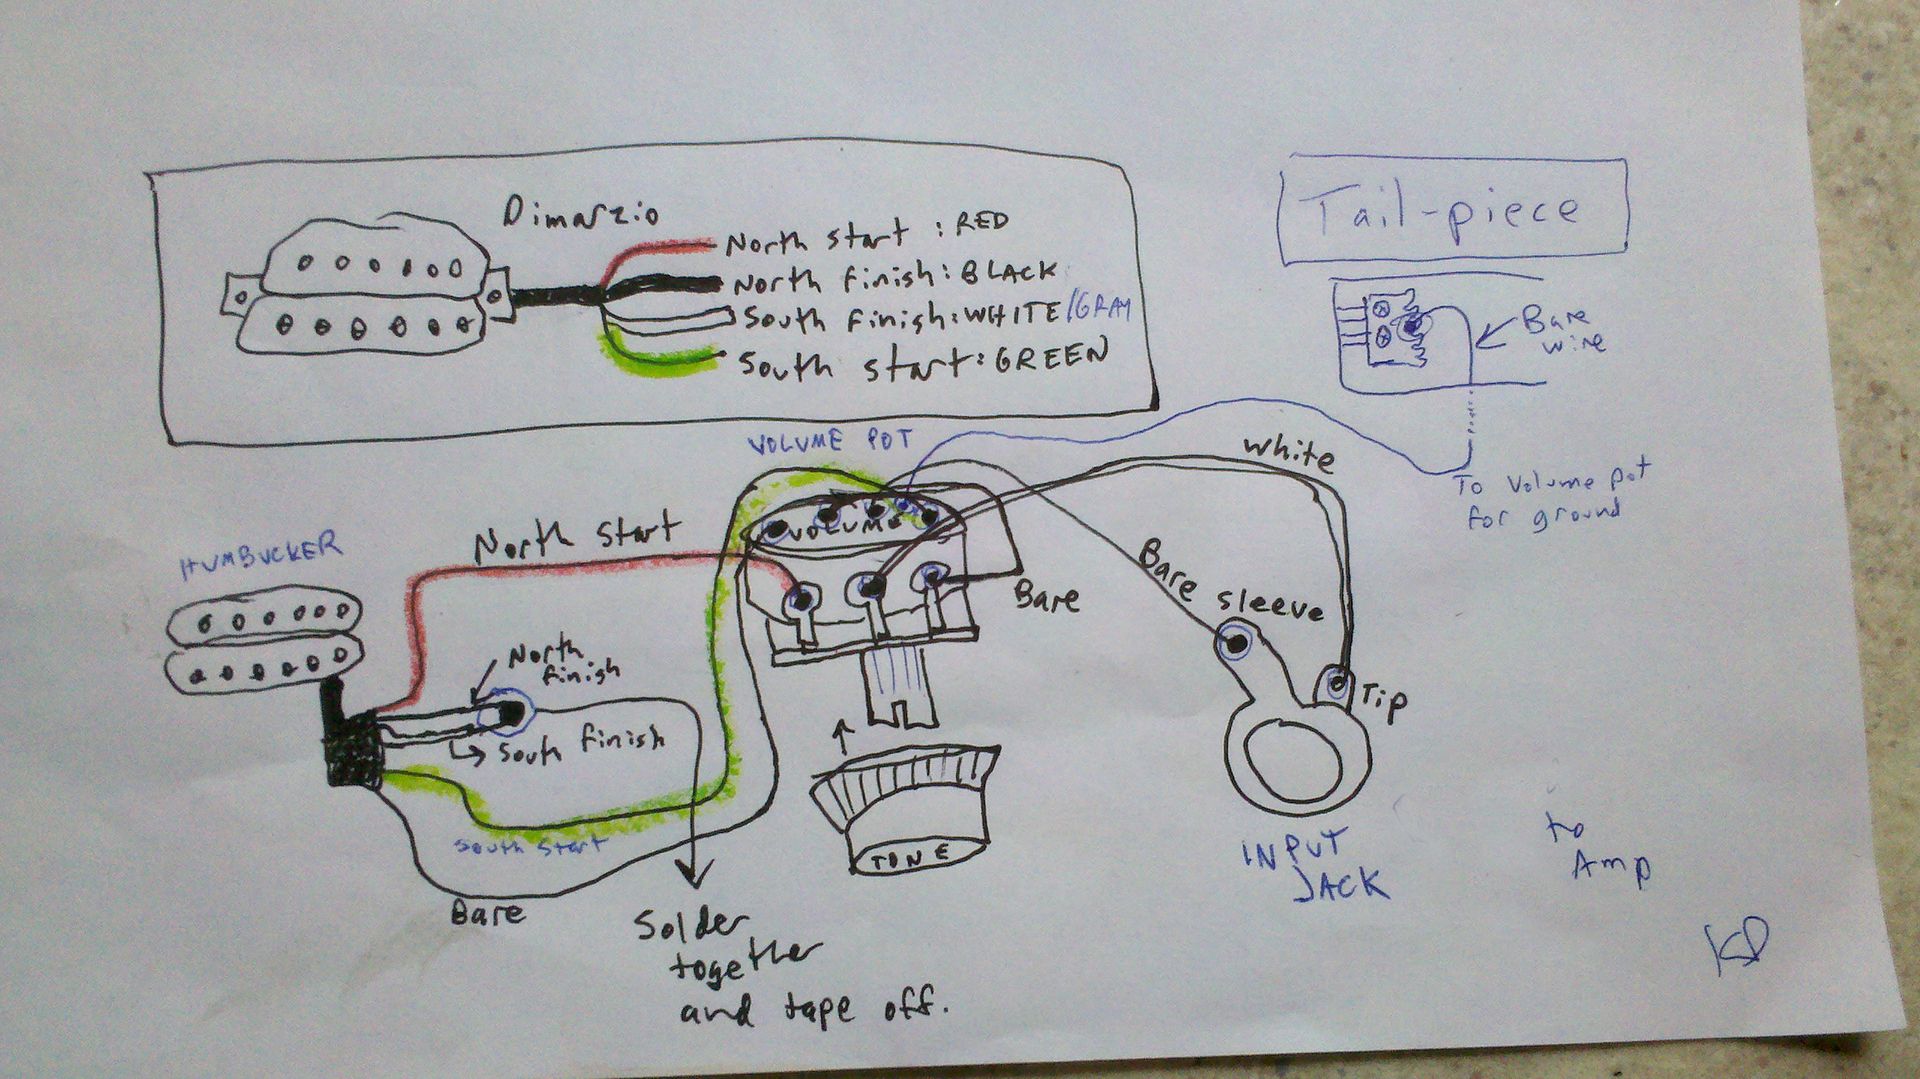 Dimarzio
North start : RED
North finish: BLACK
South finish: WHITE/GRAY
South start: GREEN
Tail-piece
Bare
wire
To Volume pot
for ground
VOLUME POT
VOLUME
White
North start
HUMBUCKER
Bare
Bare
sleeve
Tip
North
finish
South finish
South start
Bare
TONE
INPUT
JACK
to
Amp
Solder
together
and tape off.
KD